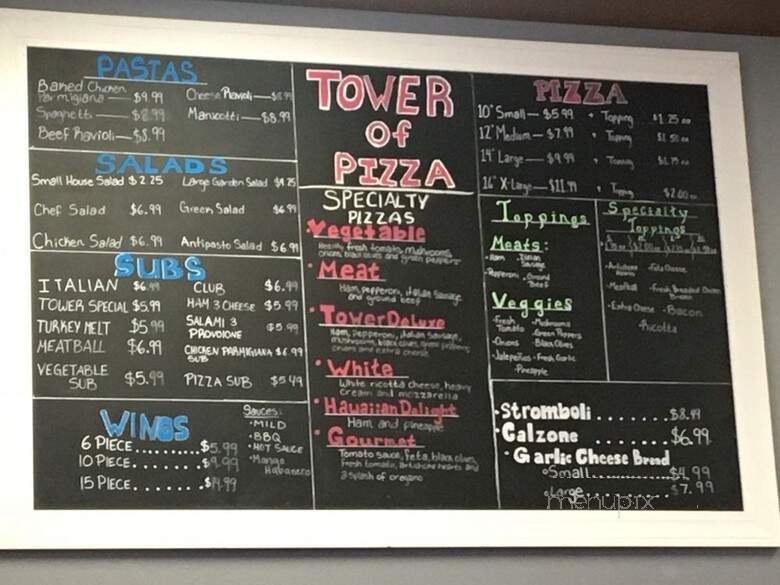 PASTAS
Baned Chicken
Parmigiana — $9.99
Cheese Ravioli — $8.99
Spaghetti — $8.99
Manicotti — $8.99
Beef Ravioli — $8.99
SALADS
Small House Salad $2.25
Large Garden Salad $4.25
Chef Salad $6.99
Green Salad $6.99
Chicken Salad $6.99
Antipasto Salad $6.99
SUBS
ITALIAN $6.99
CLUB $6.99
TOWER SPECIAL $5.99
HAM 3 CHEESE $5.99
TURKEY MELT $5.99
SALAMI 3
PROVOIONE $5.99
MEATBALL $6.99
CHICKEN PARMIGIANA $6.99
SUB
VEGETABLE
SUB $5.99
PIZZA SUB $5.49
WINGS
6 PIECE.........$5.99
10 PIECE........$9.99
15 PIECE........$14.99
Sauces:
• MILD
• BBQ
• HOT SAUCE
• Mango
Habanero
TOWER
Of
PIZZA
SPECIALTY
PIZZAS
• Vegetable
fresh tomato, mushrooms,
onions, black olives and green peppers
• Meat
Ham, pepperoni, italian sausage,
and ground beef
• Tower Deluxe
Ham, Pepperoni, italian sausage,
mushrooms, black olives, green peppers,
onions and extra cheese
• White
White ricotta cheese, heavy
cream and mozzarella
• Hawaiian Delight
Ham and pineapple
• Gourmet
Tomato sauce, feta, black olives,
fresh tomato, artichoke hearts and
a splash of oregano
PIZZA
10" Small — $5.99 + Topping $1.25 ea
12" Medium — $7.99 + Topping $1.50 ea
14" Large — $9.99 + Topping $1.75 ea
16" X-Large — $11.99 + Topping $2.00 ea
Toppings
Meats:
• Ham
• Italian
Sausage
• Pepperoni
• Ground
Beef
Veggies
• Fresh
Tomato
• Mushrooms
• Green Peppers
• Onions
• Black Olives
• Jalepeños
• Fresh Garlic
• Pineapple
Specialty
Toppings
• Artichoke
Hearts
• Feta Cheese
• Meatball
• Fresh Breaded Chicken
Breast
• Extra Cheese
• Bacon
• Ricotta
• Stromboli .......$8.99
• Calzone .......$6.99
• Garlic Cheese Bread
• Small..........$4.99
• Large..........$7.99
menupix